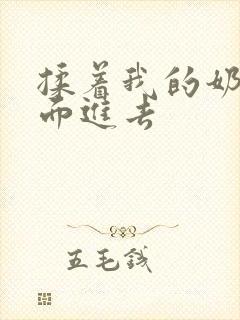 揉着我的奶
而進去
五毛钱